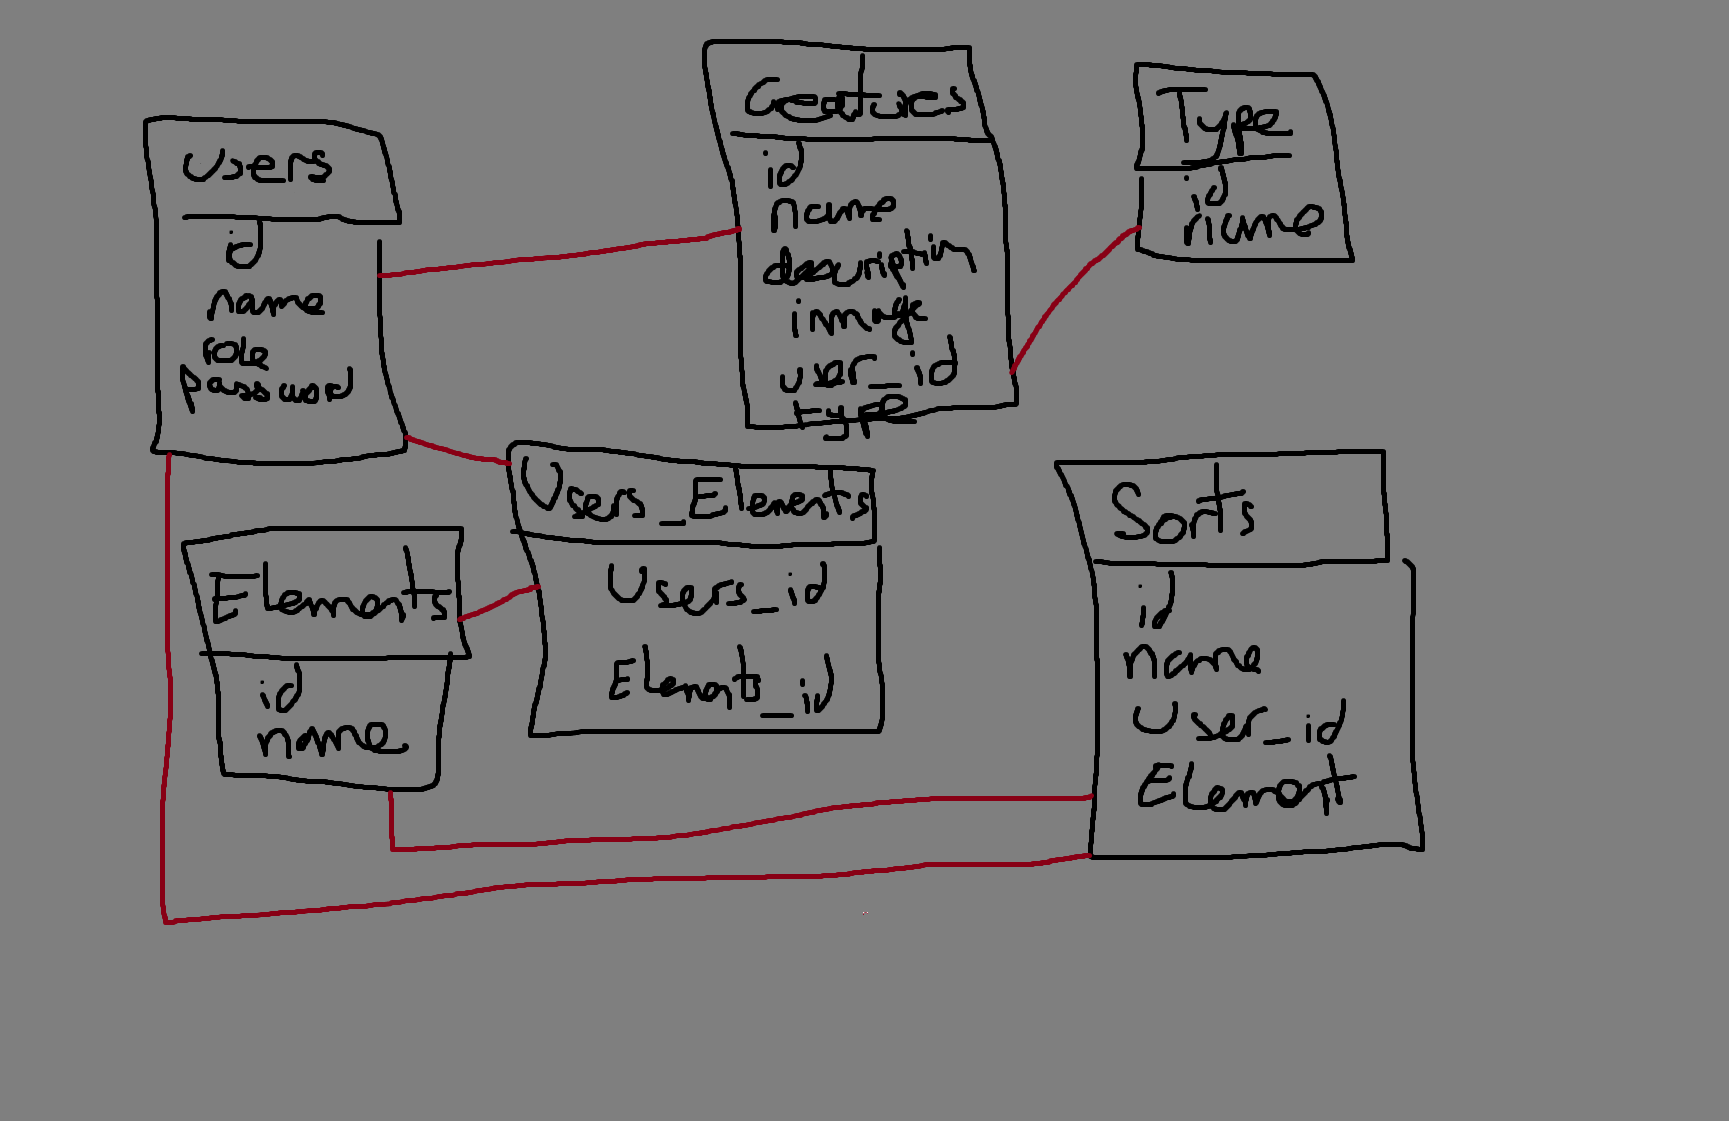 Users
id
name
role
password
Creatures
id
name
description
immage
user_id
type
Type
id
name
Elements
id
name
Users_Elements
Users_id
Elements_id
Sorts
id
name
User_id
Element